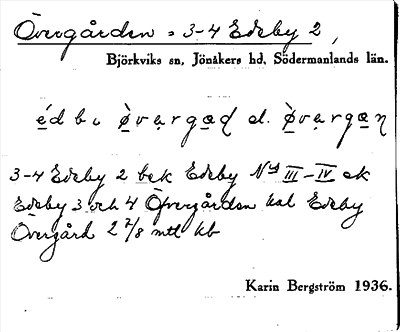 Övergården = 3-4 Edeby 2,
Björkviks sn, Jönåkers hd, Södermanlands län.
édbᵢ ø̀vargaḍ el. ø̀vargaṇ
3-4 Edeby 2 bek Edeby N:s III-IV ek
Edeby 3 och 4 Öfvergården kal Edeby
Övergård 2 7/8 mtl kb
Karin Bergström 1936.